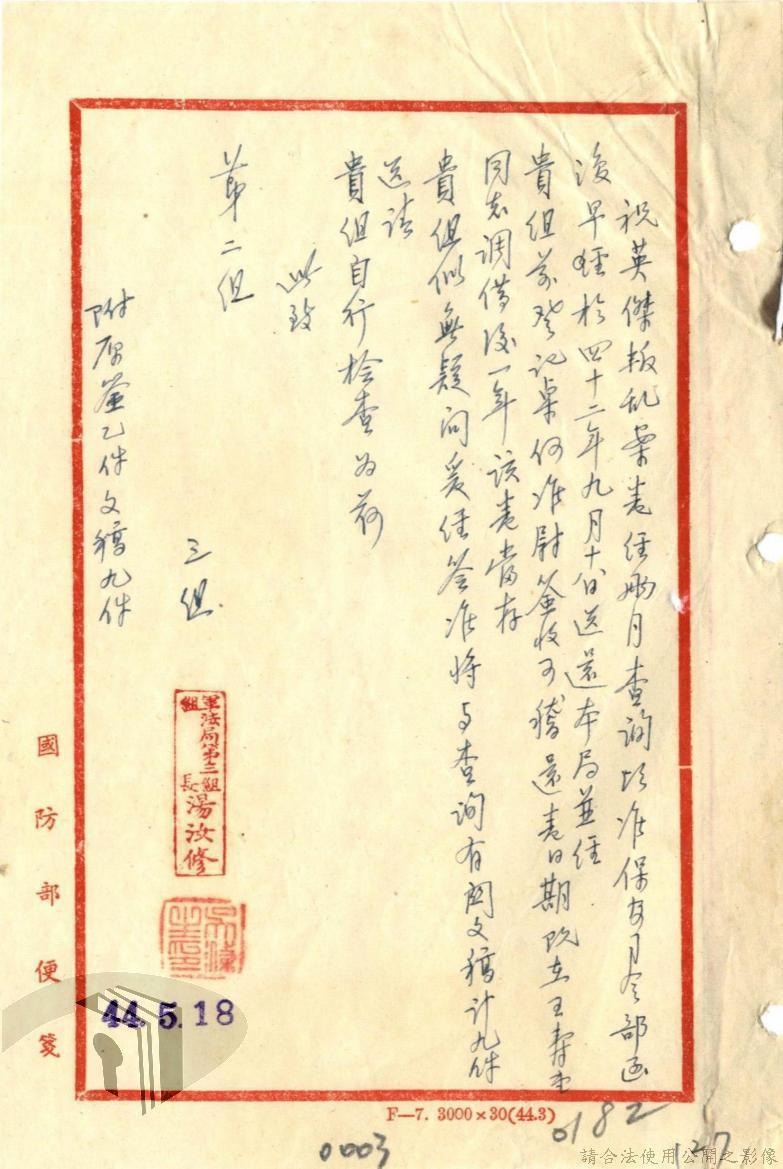 祝英傑叛乱案卷經兩月查詢頃准保安司令部函
復早經於四十二年九月十八日送還本局並經
貴組前登記桌何准尉簽收可稽還卷日期既在王壽
同志調借後一年該卷當存
貴組似無疑问爰經簽准將与查詢有関文稿計九件
送請
貴組自行检查为荷
此致
第二组
三组
軍法局第三組組長湯汝修
44.5.18
附原簽乙件文稿九件
國防部便箋
F—7. 3000×30(44.3)
0182
0003
127
請合法使用公開之影像